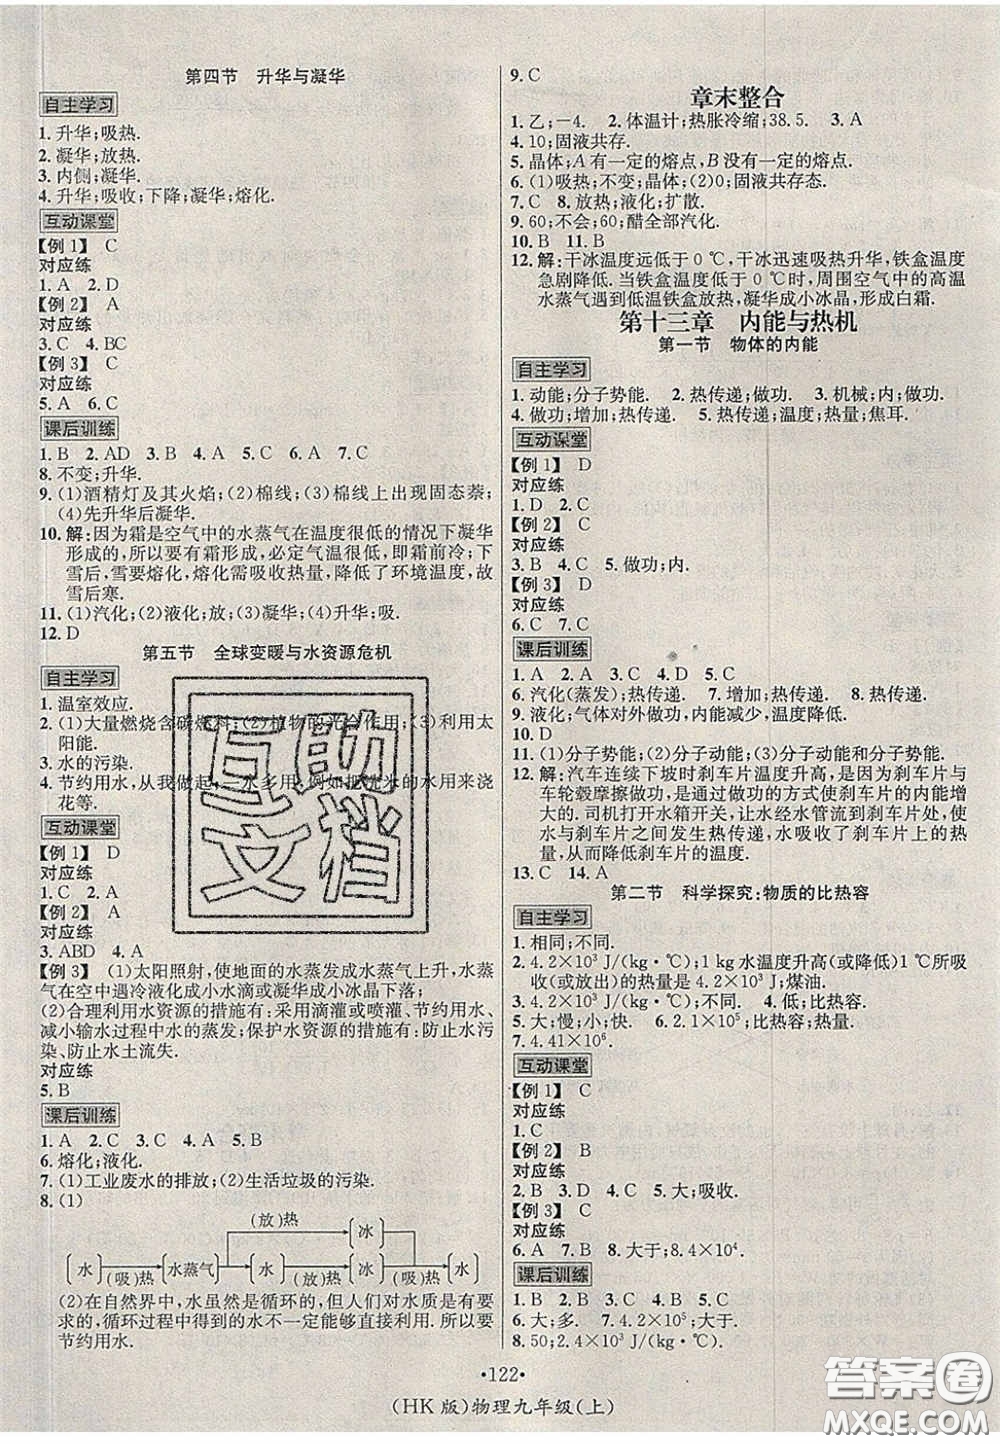 第四节 升华与凝华
自主学习
1. 升华;吸热.
2. 凝华;放热.
3. 内侧;凝华.
4. 升华;吸收;下降;凝华;熔化.
互动课堂
【例 1】 C
对应练
1. A 2. D
【例 2】 A
对应练
3. C 4. BC
【例 3】 C
对应练
5. A 6. C
课后训练
1. B 2. AD 3. B 4. A 5. C 6. A 7. C
8. 不变;升华.
9. (1)酒精灯及其火焰;(2)棉线;(3)棉线上出现固态萘;
(4)先升华后凝华.
10. 解:因为霜是空气中的水蒸气在温度很低的情况下凝华
形成的,所以要有霜形成,必定气温很低,即霜前冷;下
雪后,雪要熔化,熔化需吸收热量,降低了环境温度,故
雪后寒.
11. (1)汽化;(2)液化;放;(3)凝华;(4)升华;吸.
12. D
第五节 全球变暖与水资源危机
自主学习
1. 温室效应.
2. (1)大量燃烧含碳燃料;(2)植物的光合作用;(3)利用太
阳能.
3. 水的污染.
4. 节约用水,从我做起;一水多用,例如把洗米的水用来浇
花等.
互动课堂
【例 1】 D
对应练
1. C 2. D
【例 2】 A
对应练
3. ABD 4. A
【例 3】 (1)太阳照射,使地面的水蒸发成水蒸气上升,水蒸
气在空中遇冷液化成小水滴或凝华成小冰晶下落;
(2)合理利用水资源的措施有:采用滴灌或喷灌、节约用水、
减小输水过程中水的蒸发;保护水资源的措施有:防止水污
染、防止水土流失.
对应练
5. B
课后训练
1. A 2. C 3. C 4. A 5. B
6. 熔化;液化.
7. (1)工业废水的排放;(2)生活垃圾的污染.
8. (1)
(放)热 冰
水 (吸)热 水蒸气 水 (放)热 冰 (吸)热 水
(2)在自然界中,水虽然是循环的,但人们对水质是有要
求的,循环过程中得到的水不一定能够直接利用.所以要
节约用水.
9. C
章末整合
1. 乙;-4. 2. 体温计;热胀冷缩;38.5. 3. A
4. 10;固液共存.
5. 晶体;A 有一定的熔点,B 没有一定的熔点.
6. (1)吸热;不变;晶体;(2)0;固液共存态.
7. C 8. 放热;液化;扩散.
9. 60;不会;60;醋全部汽化.
10. B 11. B
12. 解:干冰温度远低于 0 ℃,干冰迅速吸热升华,铁盒温度
急剧降低.当铁盒温度低于 0 ℃时,周围空气中的高温
水蒸气遇到低温铁盒放热,凝华成小冰晶,形成白霜.
第十三章 内能与热机
第一节 物体的内能
自主学习
1. 动能;分子势能. 2. 热传递;做功. 3. 机械;内;做功.
4. 做功;增加;热传递. 5. 热传递;温度;热量;焦耳.
互动课堂
【例 1】 D
对应练
1. D 2. D
【例 2】 C
对应练
3. B 4. C 5. 做功;内.
【例 3】 D
对应练
6. C 7. C
课后训练
1. A 2. A 3. D 4. C 5. C
6. 汽化(蒸发);热传递. 7. 增加;热传递. 8. 热传递.
9. 液化;气体对外做功,内能减少,温度降低.
10. D
11. (1)分子势能;(2)分子动能;(3)分子动能和分子势能.
12. 解:汽车连续下坡时刹车片温度升高,是因为刹车片与
车轮毂摩擦做功,通过做功的方式使刹车片的内能增
大的.司机打开水箱开关,让水经水管流到刹车片处,使
水与刹车片之间发生热传递,水吸收了刹车片上的热
量,从而降低刹车片的温度.
13. C 14. A
第二节 科学探究:物质的比热容
自主学习
1. 相同;不同.
2. 4.2×10³ J/(kg·℃);1 kg水温度升高(或降低)1 ℃所
吸收(或放出)的热量是4.2×10³ J;煤油.
3. 4.2×10³ J/(kg·℃);不同. 4. 低;比热容.
5. 大;慢;小;快. 6. 2.1×10⁵;比热容;热量.
7. 4.41×10⁶.
互动课堂
【例 1】 C
对应练
1. C
【例 2】 B
对应练
2. B 3. D 4. C 5. 大;吸收.
【例 3】 C
对应练
6. A 7. B 8. 大于;8.4×10⁴.
课后训练
1. B 2. C 3. C 4. B 5. C
6. 大;多. 7. 4.2×10⁵;大于.
8. 50;2.4×10³ J/(kg·℃).
·122·
(HK 版)物理九年级(上)
互助文档
答案圈
MXQE.COM